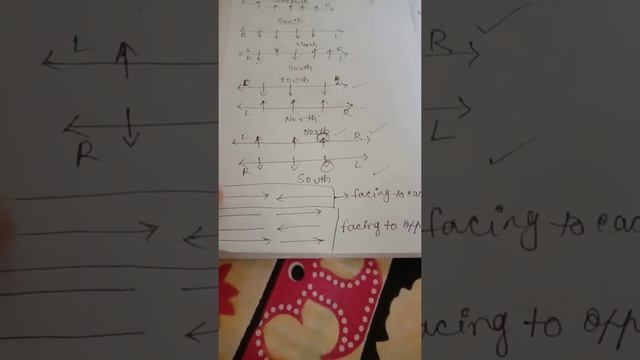 R
South
R L
L North R
R L
South
South
R
L R
North
North
L R
R L
South
facing to eac
facing to opp
L R
R L
facing to eac
acing to opp